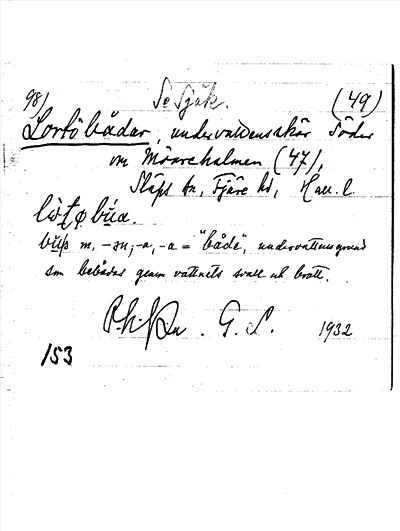 98/ Se Sjök. (49)
Lortöbådar, undervattensskär Söder
om Mönsterholmen (47),
Släps sn, Fjäre hd, Hall. l.
bådɘ m, -ɘn, -a, -a = "både", undervattensgrund
som bebådas genom vattnets svall och brott.
G. S. 1932
153